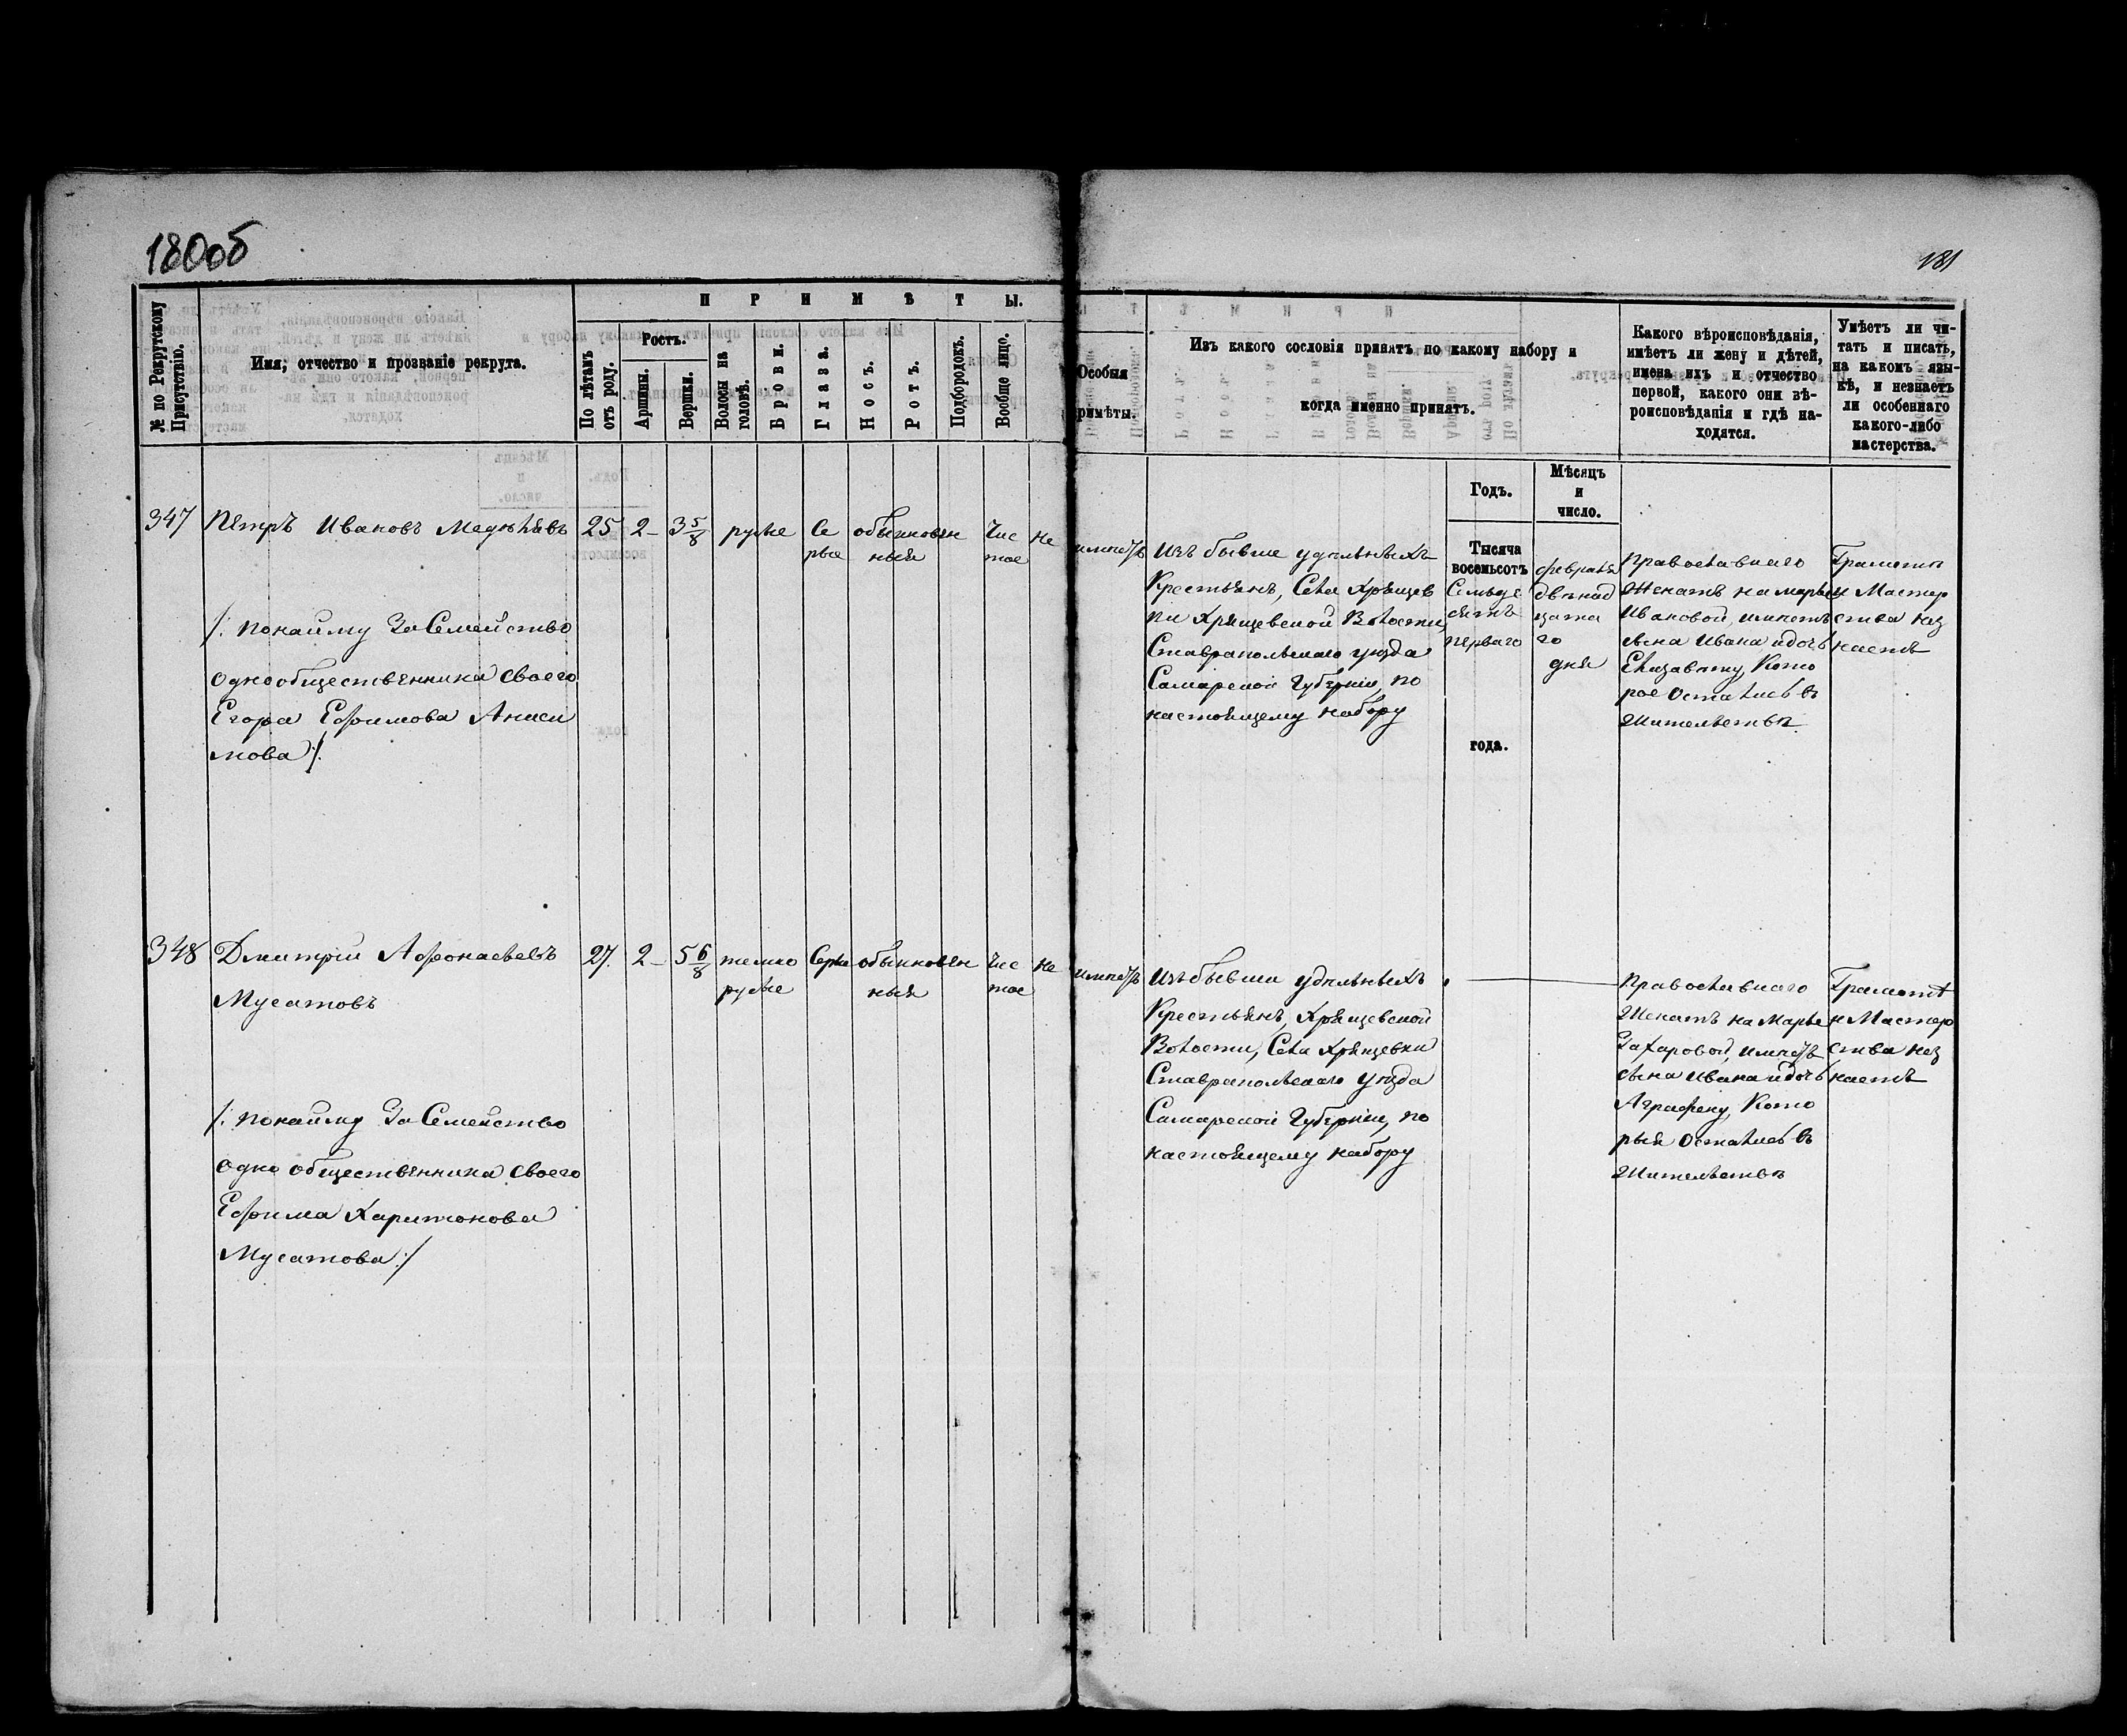 180об
181
ПРИМѢТЫ.
№ по Рекрутскому Присутствію.
Имя, отчество и прозваніе рекрута.
По лѣтамъ отъ роду.
Ростъ.
Аршины.
Вершки.
Волосы на головѣ.
Брови.
Глаза.
Носъ.
Ротъ.
Подбородокъ.
Вообще лицо.
Особыя
римѣты.
Изъ какого сословія принятъ по какому набору и
когда именно принятъ.
Годъ.
Мѣсяцъ
и
число.
Какого вѣроисповѣданія,
имѣетъ ли жену и дѣтей,
имена ихъ и отчество
первой, какого они вѣ-
роисповѣданія и гдѣ на-
ходятся.
Умѣетъ ли чи-
тать и писать,
на какомъ язы-
кѣ, и незнаетъ
ли особеннаго
какого-либо
мастерства.
347 Петръ Ивановъ 25 2 3 5/8 русые Се обыкновен Чис не
рые ныя тое
/: понайму За Семейство
однообщественника своего
Егора Ефимова Аниси
мова :/
имѣетъ
Изъ бывше удѣльныхъ
Крестьянъ, Села Хрящев
ки Хрящевской Волости,
Ставропольскаго уѣзда
Самарской Губерніи, по
настоящему набору
Тысяча
восемьсотъ
Семьде
сятъ
перваго
года.
февраля
двѣнад
цата
го
дня
Православнаго
Женатъ на Марье
Ивановой, имѣетъ
сына Ивана и дочь
Елизавету, Кото
рое Остались въ
Жительствѣ.
Грамоты
и Мастер
ства нез
наетъ
348 Дмитрій Афонасьевъ 27. 2 5 6/8 темно Серые обыкновен Чис не
Мусатовъ русые ныя тое
/: понайму За Семейство
одно общественника своего
Ефима Харитонова
Мусатова :/
имѣетъ
Изъ бывши удѣльныхъ
Крестьянъ, Хрящевской
Волости, Села Хрящевки
Ставропольскаго уѣзда
Самарской Губерніи, по
настоящему набору
Православнаго
Женатъ на Марье
Захаровой, имѣетъ
сына Ивана и дочь
Аграфену, Кото
рыя Остались въ
Жительствѣ
Грамотѣ
и Мастер
ства нез
наетъ